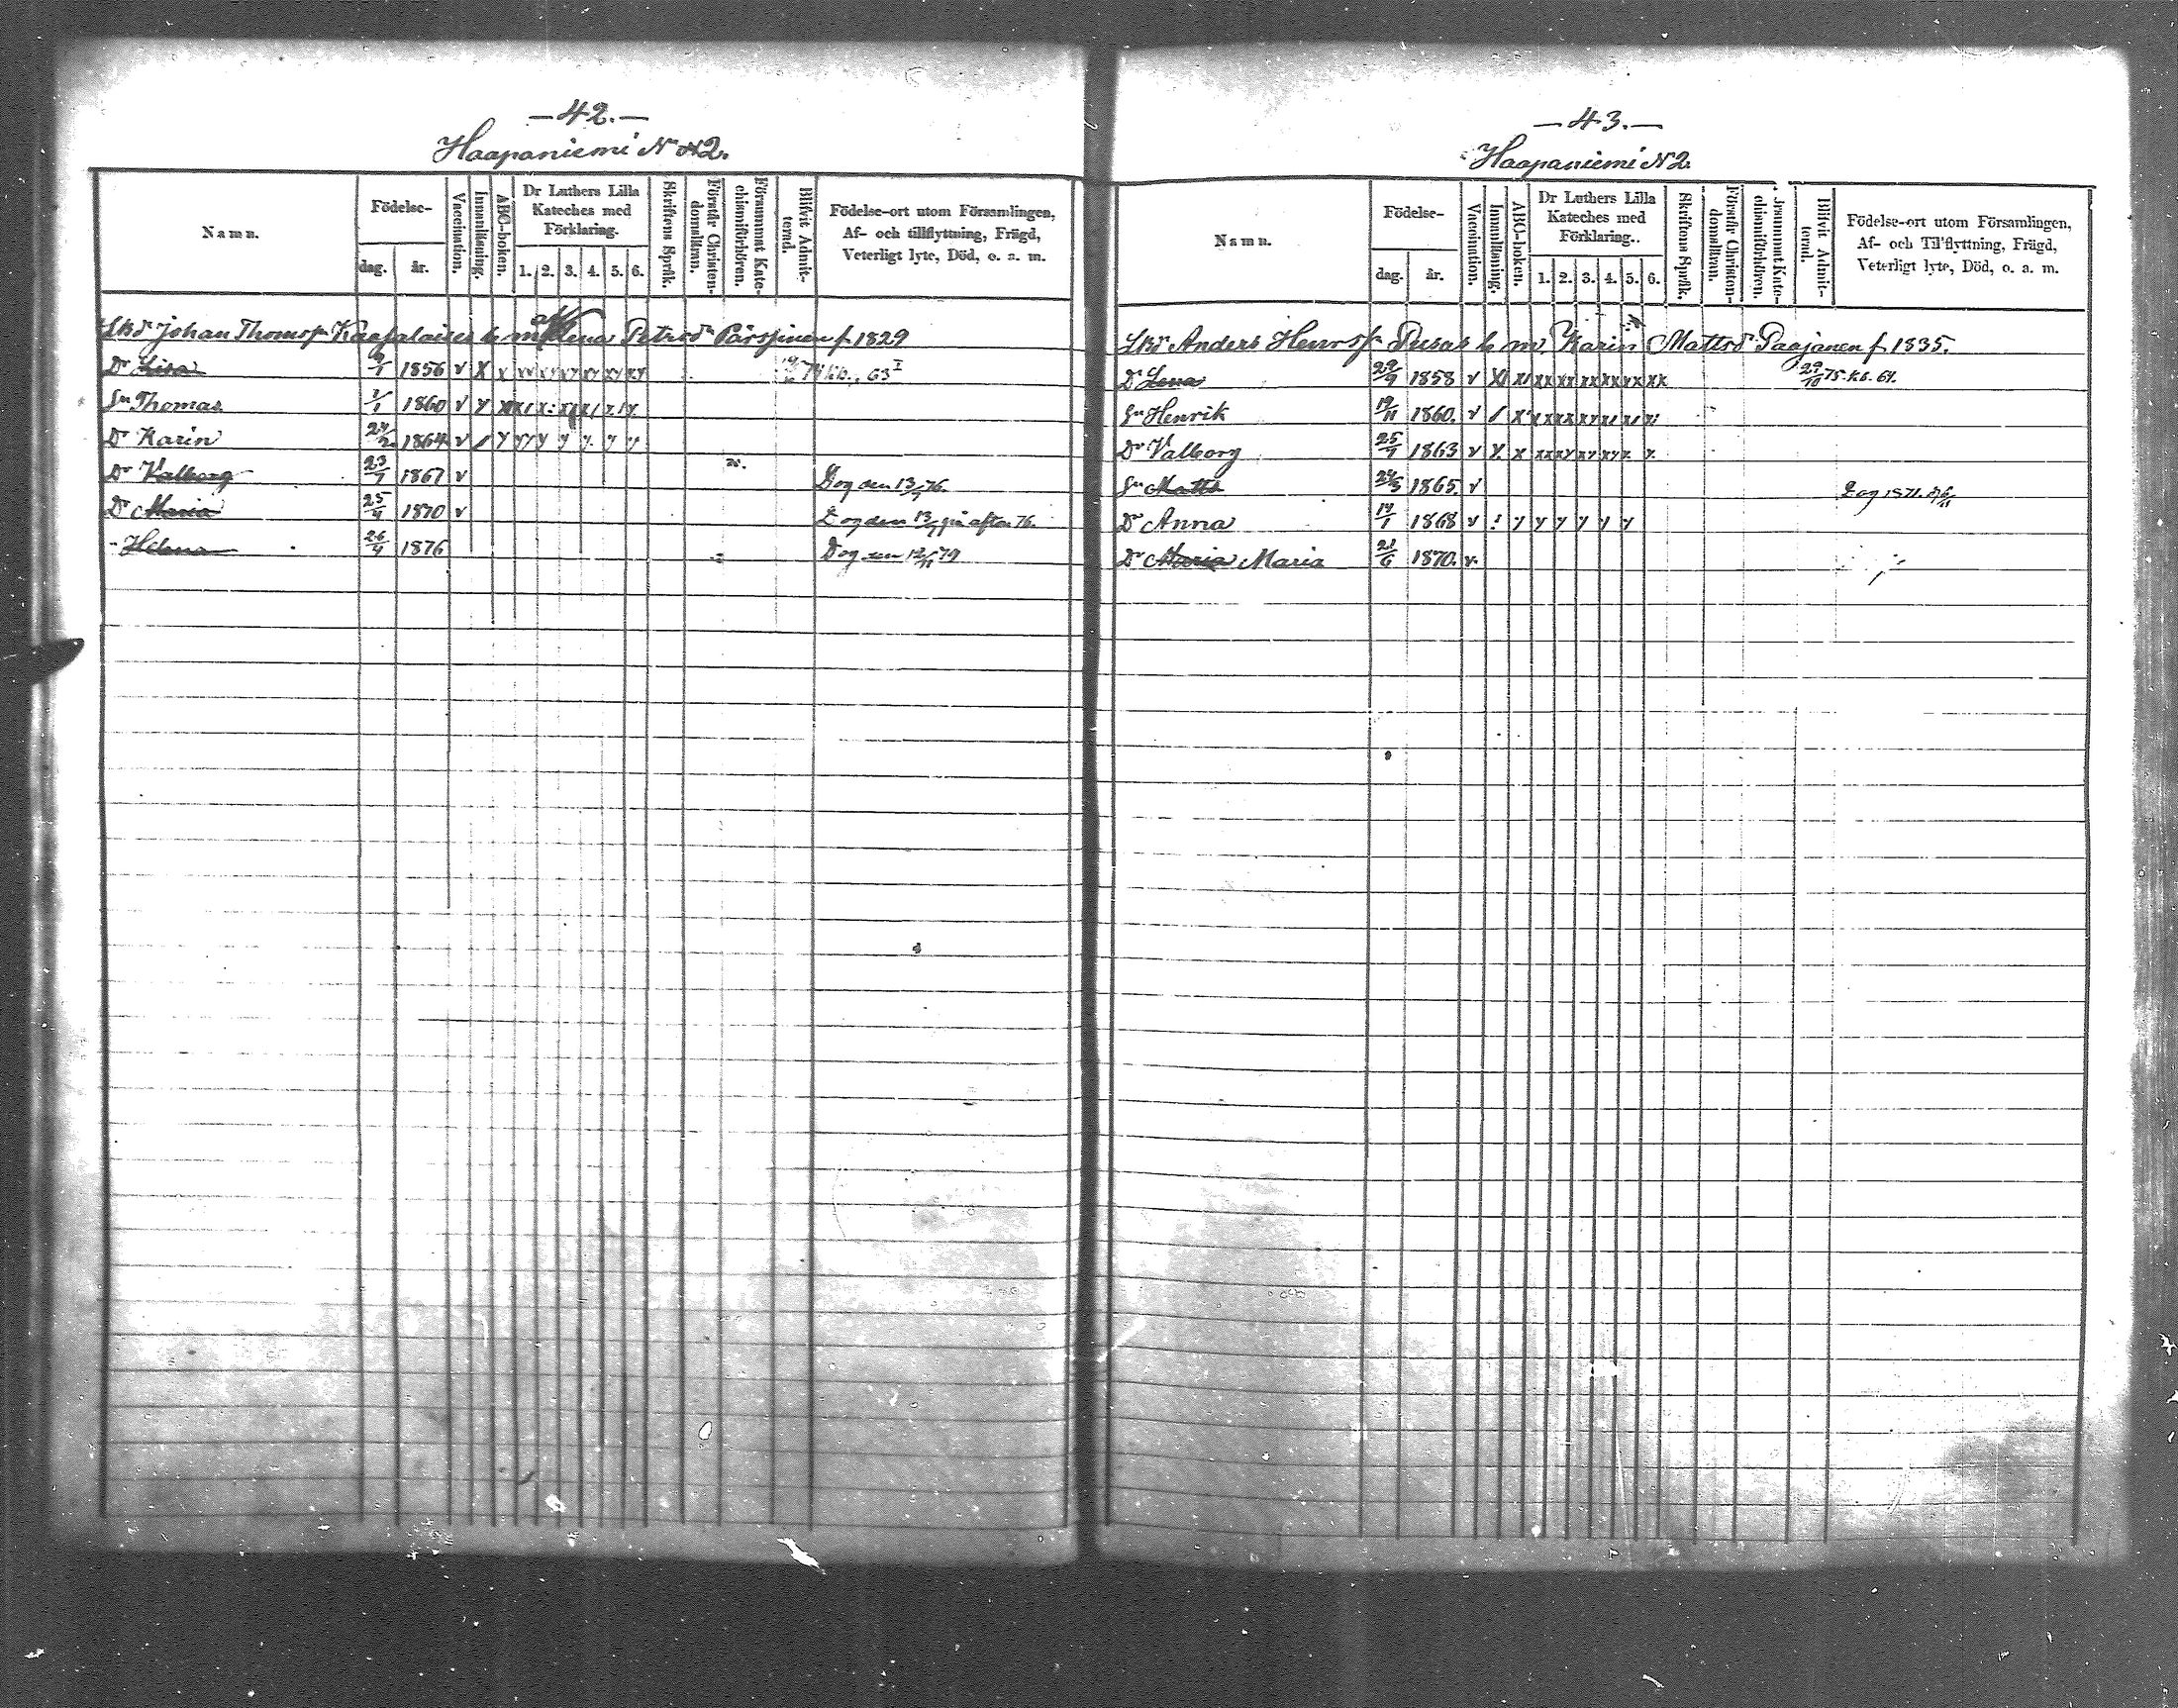 —42.—
Haapaniemi N 2.
Namn.
Födelse-
dag. år.
Vaccination.
Innanläsning.
ABC-boken.
Dr Luthers Lilla Kateches med Förklaring.
1. 2. 3. 4. 5. 6.
Skriftens Språk.
Förstår Christendomsläran.
Försummat Katechismiförhören.
Blifvit Admitterad.
Födelse-ort utom Församlingen, Af- och tillflyttning, Frägd, Veterligt lyte, Död, o. a. m.
Johan Thomsp h m Lena Petersdr f 1829
Dr Lisa 1856 v X x xy xy xy xy xy xy 63
Sn Thomas 1/1 1860 v
Dr Karin 1864 v / y
Dr Valborg 23/7 1867 v Dog den 13/7 76.
Dr Maria 25/4 1870 v Dog den 13/7 på afton 76.
- Helena 26/4 1876 Dog den 12/11 79
—43.—
Haapaniemi N 2.
Namn.
Födelse-
dag. år.
Vaccination.
Innanläsning.
ABC-boken.
Dr Luthers Lilla Kateches med Förklaring..
1. 2. 3. 4. 5. 6.
Skriftens Språk.
Förstår Christendomsläran.
Försummat Katechismiförhören.
Blifvit Admitterad.
Födelse-ort utom Församlingen, Af- och Tillflyttning, Frägd, Veterligt lyte, Död, o. a. m.
Anders Henrsp Pusas h m. Karin Mattsdr Paajanen f 1835.
Dr Lena 29/9 1858 v 29/10 75. kb. 64.
Sn Henrik 19/11 1860. v /
Dr Valborg 25/7 1863 v x x
Sn Matts 1865. v Dog 1871.
Dr Anna 14/1 1868 v : y y y y y y
Dr Maria Maria 21/6 1870. v.